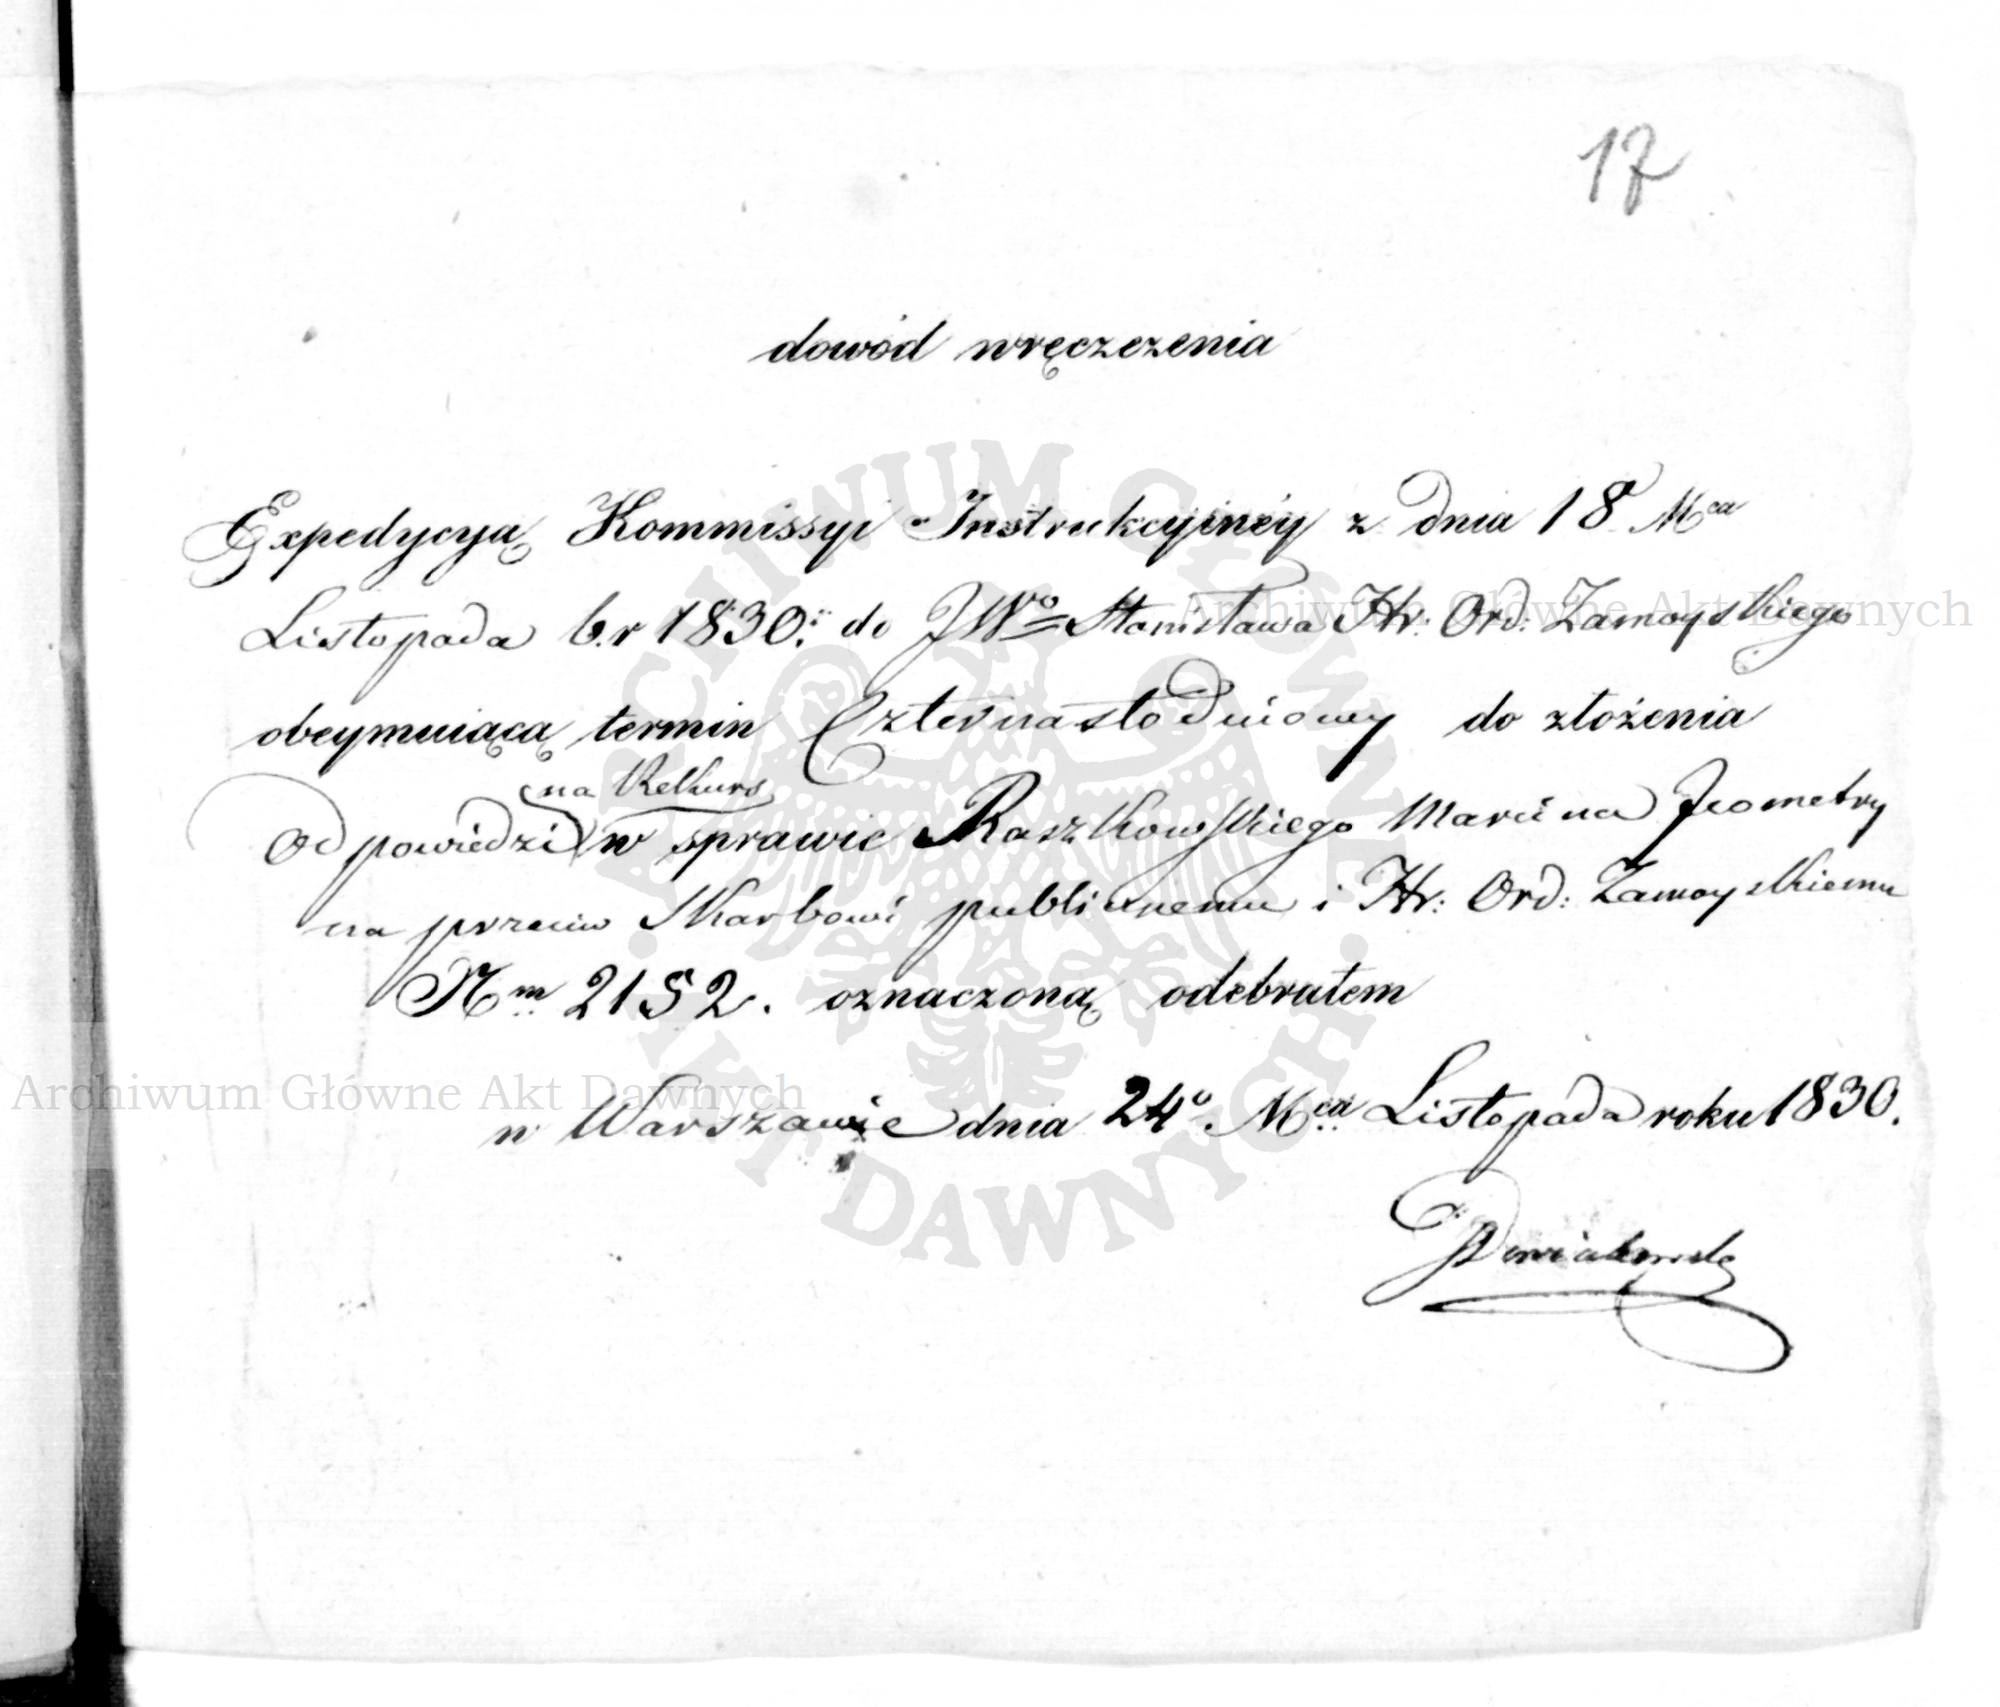 17
dowód wręczezenia
Expedycyą Kommissyi Instrukcyinéy z dnia 18 Mca
Listopada b.r 1830. do JWo Stanisława Hr: Ord: Zamoyskiego
obeymuiącą termin Czternastodniowy do złożenia
na Rekurs
Odpowiedzi w sprawie Raszkowskiego Marcina Jeometry
na przeciw Skarbowi publicznemu i Hr: Ord: Zamoyskiemu
Nm 2152. oznaczoną odebrałem
w Warszawie dnia 24o Mca Listopada roku 1830.
ARCHIWUM GŁÓWNE AKT DAWNYCH
Archiwum Główne Akt Dawnych
Archiwum Główne Akt Dawnych